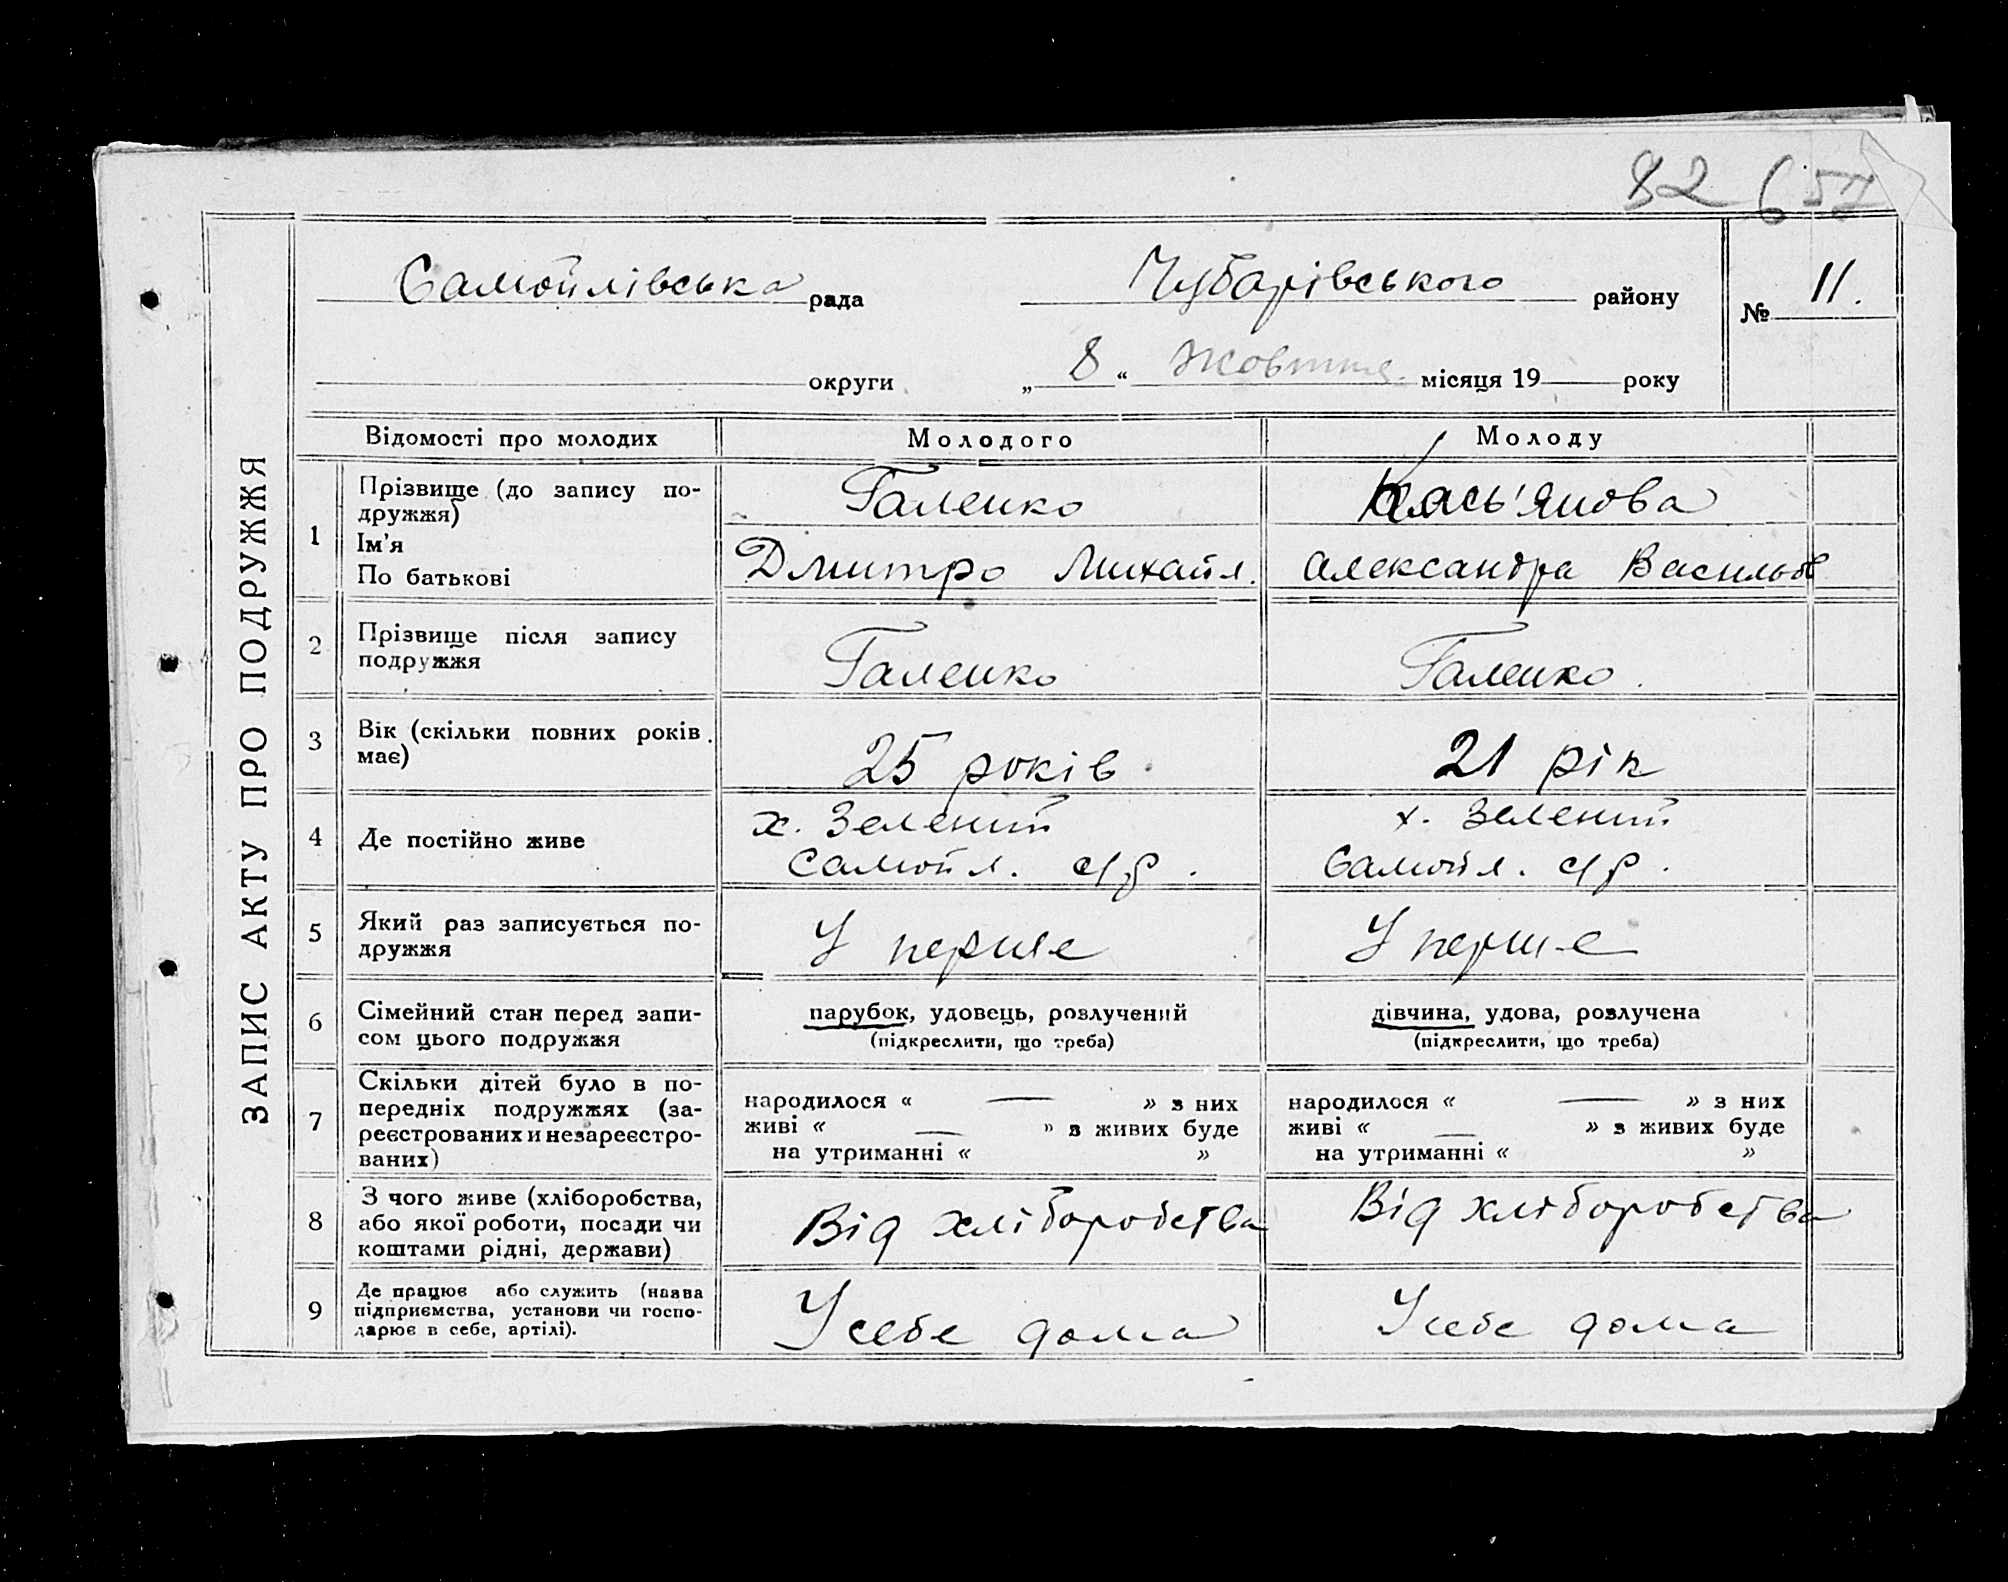 82
ЗАПИС АКТУ ПРО ПОДРУЖЖЯ
Самойлівська рада
Чубарівського району
№ 11.
округи
„ 8 “ Жовтня місяця 19 року
Відомості про молодих
Молодого
Молоду
1
Прізвище (до запису по-
дружжя)
Ім'я
По батькові
Галенко
Дмитро Михайл.
Кась'янова
Александра Васильов
2
Прізвище після запису
подружжя
Галенко
Галенко.
3
Вік (скільки повних років
має)
25 років
21 рік
4
Де постійно живе
х. Зелений
Самойл. с/р.
х. Зелений
Самойл. с/р.
5
Який раз записується по-
дружжя
У перше
У перше
6
Сімейний стан перед запи-
сом цього подружжя
парубок, удовець, розлучений
(підкреслити, що треба)
дівчина, удова, розлучена
(підкреслити, що треба)
7
Скільки дітей було в по-
передніх подружжях (за-
реєстрованих и незареєстро-
ваних)
народилося « — » з них
живі « — » з живих буде
на утриманні « »
народилося « — » з них
живі « — » з живих буде
на утриманні « »
8
З чого живе (хліборобства,
або якої роботи, посади чи
коштами рідні, держави)
Від хліборобства
Від хліборобства
9
Де працює або служить (назва
підприємства, установи чи госпо-
дарює в себе, артілі).
У себе дома
У себе дома